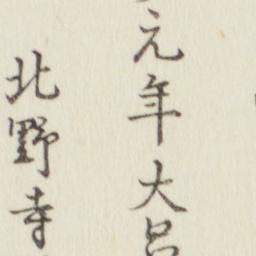 元年大呂
北野寺